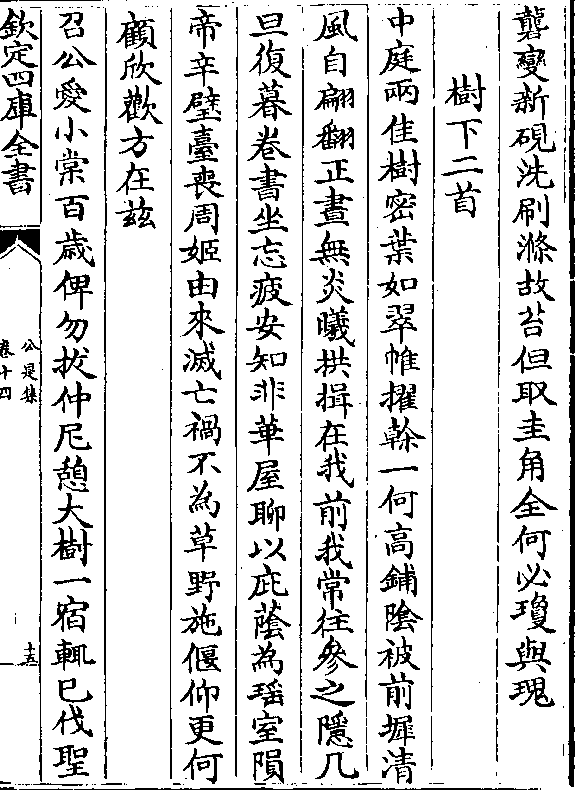 礱變新硯洗刷滌故苔但取圭角全何必瓊與瑰
樹下二首
中庭兩佳樹密葉如翠帷擢榦一何高鋪陰被前墀清
風自翩翻正晝無炎曦拱揖在我前我常往參之隱几
旦復暮卷書坐忘疲安知非華屋聊以庇蔭為瑶室隕
帝辛璧臺喪周姬由來滅亡禍不為草野施偃仰更何
顧欣歡方在兹
召公愛小棠百歲俾勿拔仲尼憩大樹一宿輒已伐聖
欽定四庫全書
公是集
卷十四
十五